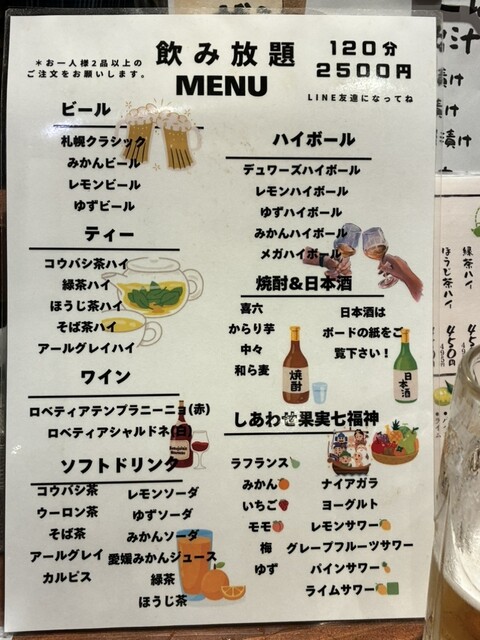 *お一人様2品以上の
ご注文をお願いします。
飲み放題
MENU
120分
2500円
LINE友達になってね
ビール
札幌クラシック
みかんビール
レモンビール
ゆずビール
ティー
コウバシ茶ハイ
緑茶ハイ
ほうじ茶ハイ
そば茶ハイ
アールグレイハイ
ワイン
ロベティアテンプラニーニョ(赤)
ロベティアシャルドネ(白)
ソフトドリンク
コウバシ茶
ウーロン茶
そば茶
アールグレイ
カルピス
レモンソーダ
ゆずソーダ
みかんソーダ
愛媛みかんジュース
緑茶
ほうじ茶
ハイボール
デュワーズハイボール
レモンハイボール
ゆずハイボール
みかんハイボール
メガハイボール
焼酎&日本酒
喜六
からり芋
中々
和ら麦
日本酒は
ボードの紙をご
覧下さい！
焼酎
日本酒
しあわせ果実七福神
ラフランス
みかん
いちご
モモ
梅
ゆず
ナイアガラ
ヨーグルト
レモンサワー
グレープフルーツサワー
パインサワー
ライムサワー
漬け
漬け
緑茶ハイ
ほうじ茶ハイ
450円
450円